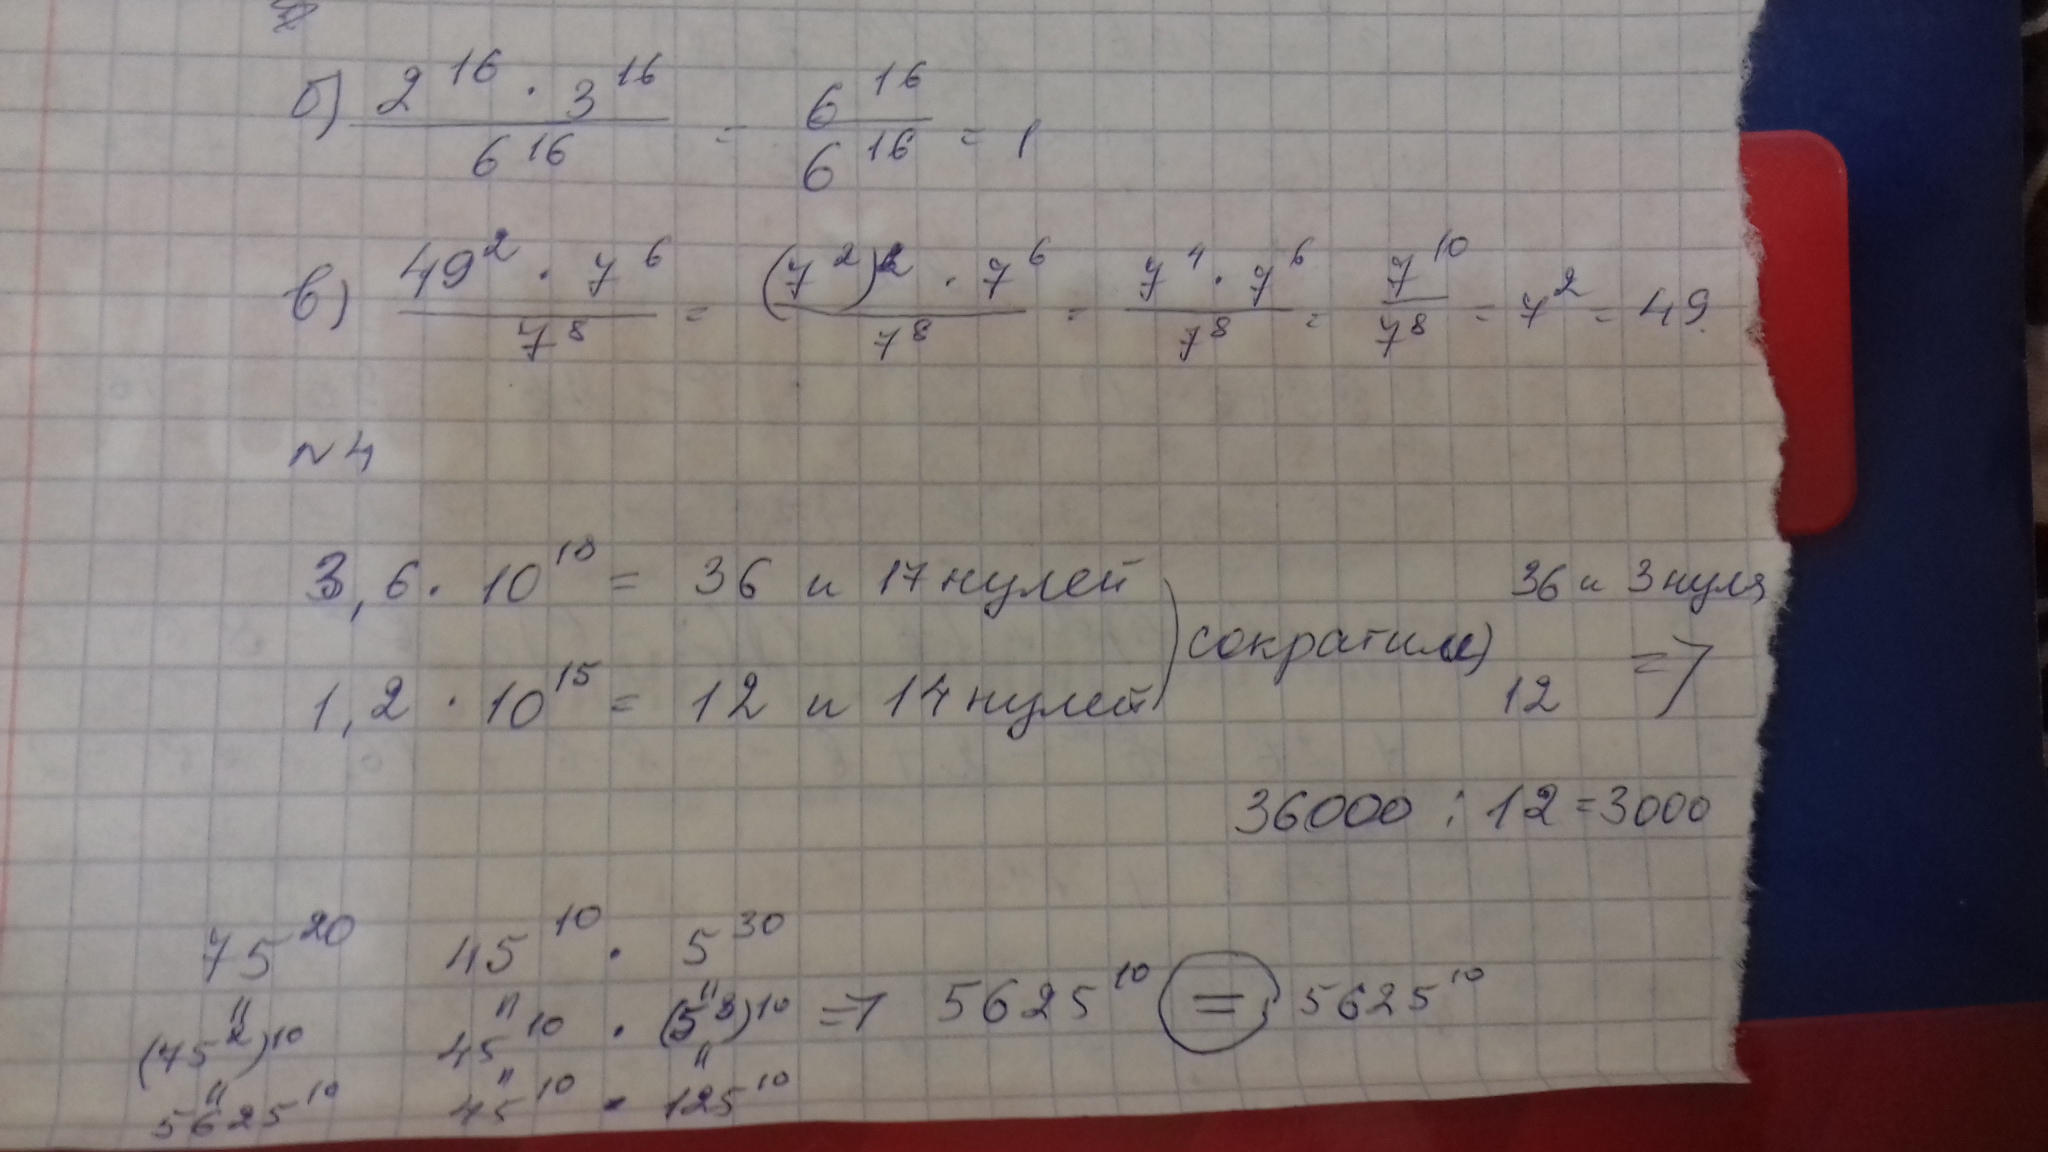 б) 2^16 · 3^16 / 6^16 = 6^16 / 6^16 = 1
в) 49^2 · 7^6 / 7^8 = (7^2)^2 · 7^6 / 7^8 = 7^4 · 7^6 / 7^8 = 7^10 / 7^8 = 7^2 = 49.
N4
3,6 · 10^18 = 36 и 17 нулей
1,2 · 10^15 = 12 и 14 нулей
) сократим)
36 и 3 нуля
12 =>
36000 : 12 = 3000
75^20 45^10 · 5^30
" " "
(75^2)^10 45^10 · (5^3)^10 => 5625^10 = 5625^10
" " "
5625^10 45^10 · 125^10